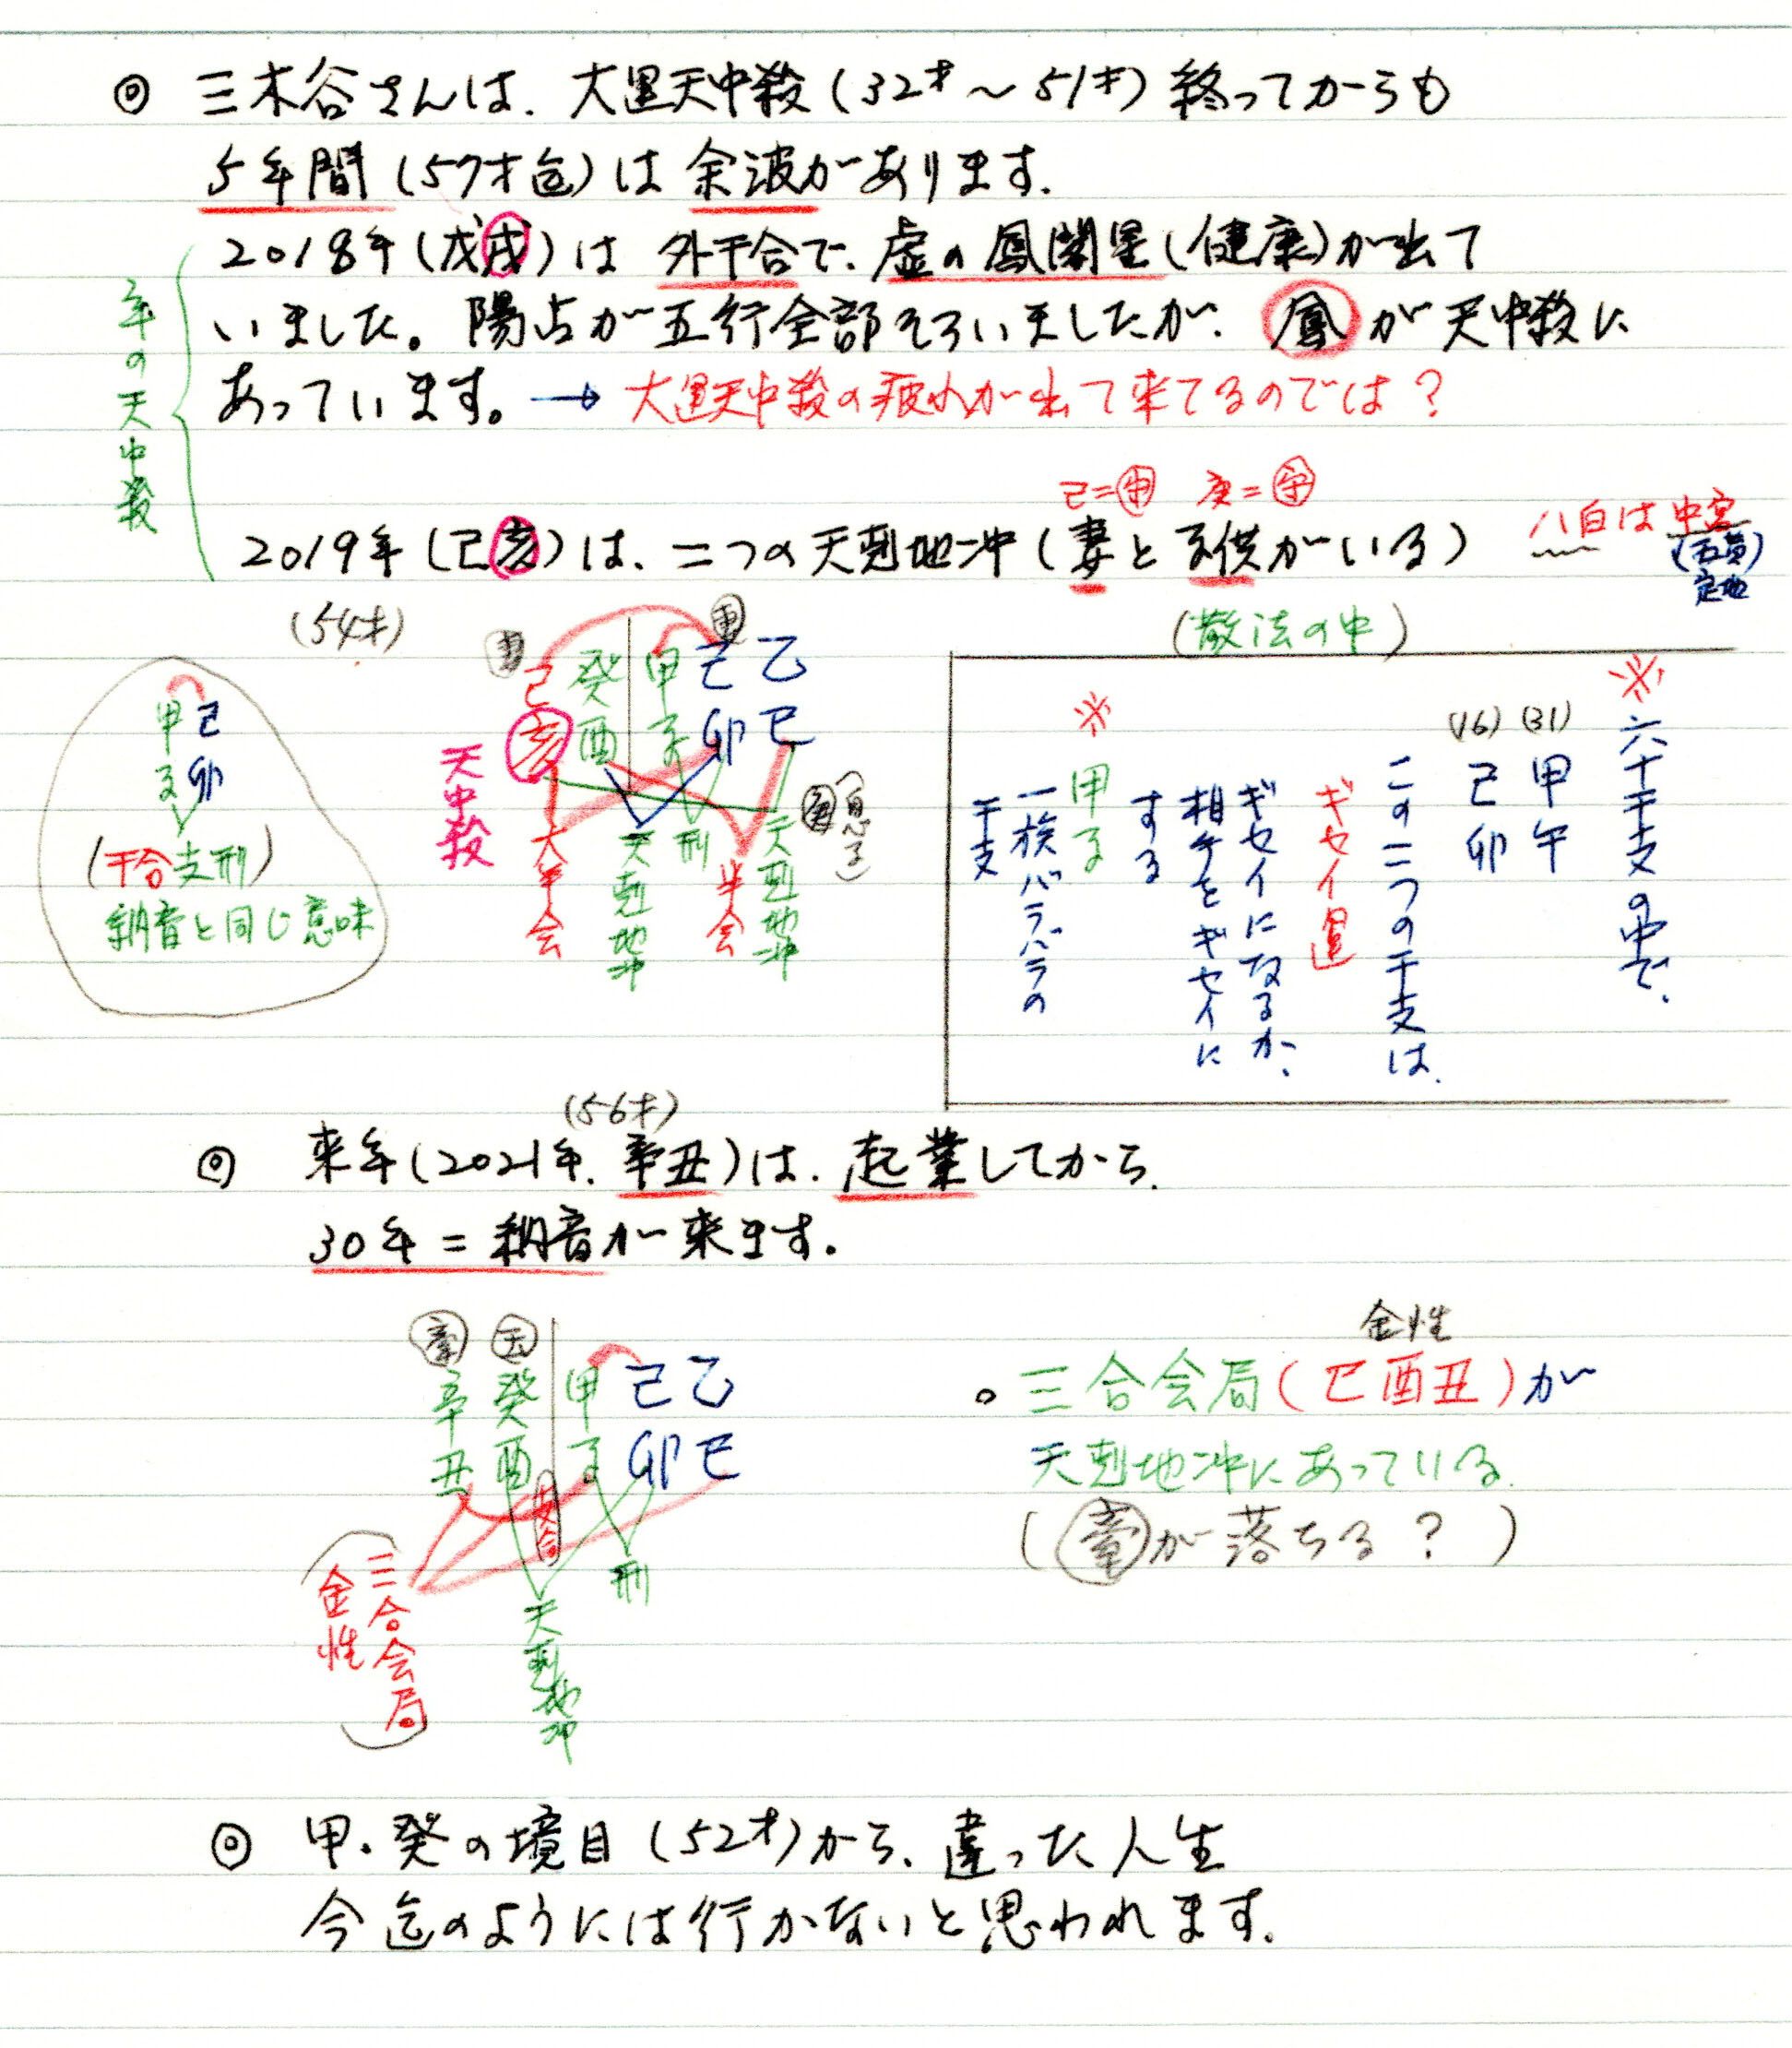 ◎ 三木谷さんは、大運天中殺(32才～51才)終ってからも
5年間(57才迄)は余波があります.
年の天中殺
2018年(戊戌)は外干合で、虚の鳳閣星(健康)が出て
いました。陽占が五行全部そろいましたが、鳳が天中殺に
あっています。→大運天中殺の疲れが出て来てるのでは?
己=車 庚=牽
2019年(己亥)は、二つの天剋地冲(妻と子供がいる)
八白は中宮
(五黄)
定地
(54才)
(散法の中)
己 癸 甲 己 乙
亥 酉 子 卯 巳
車
天中殺
大半会
天剋地冲
刑
半会
天剋地冲
甲己
子卯
(干合支刑)
納音と同じ意味
※六十干支の中で、
(31)甲午
(16)己卯
この二つの干支は、
ギセイ運
ギセイになるか、
相手をギセイに
する
※甲子
一族バラバラの
干支
(56才)
◎ 来年(2021年.辛丑)は、起業してから、
30年=納音が来ます.
牽 玉
辛 癸 甲 己 乙
丑 酉 子 卯 巳
支合
刑
天剋地冲
三合会局
金性
金性
○三合会局(巳酉丑)が
天剋地冲にあっている.
(牽が落ちる?)
◎ 甲.癸の境目(52才)から、違った人生
今迄のようには行かないと思われます.